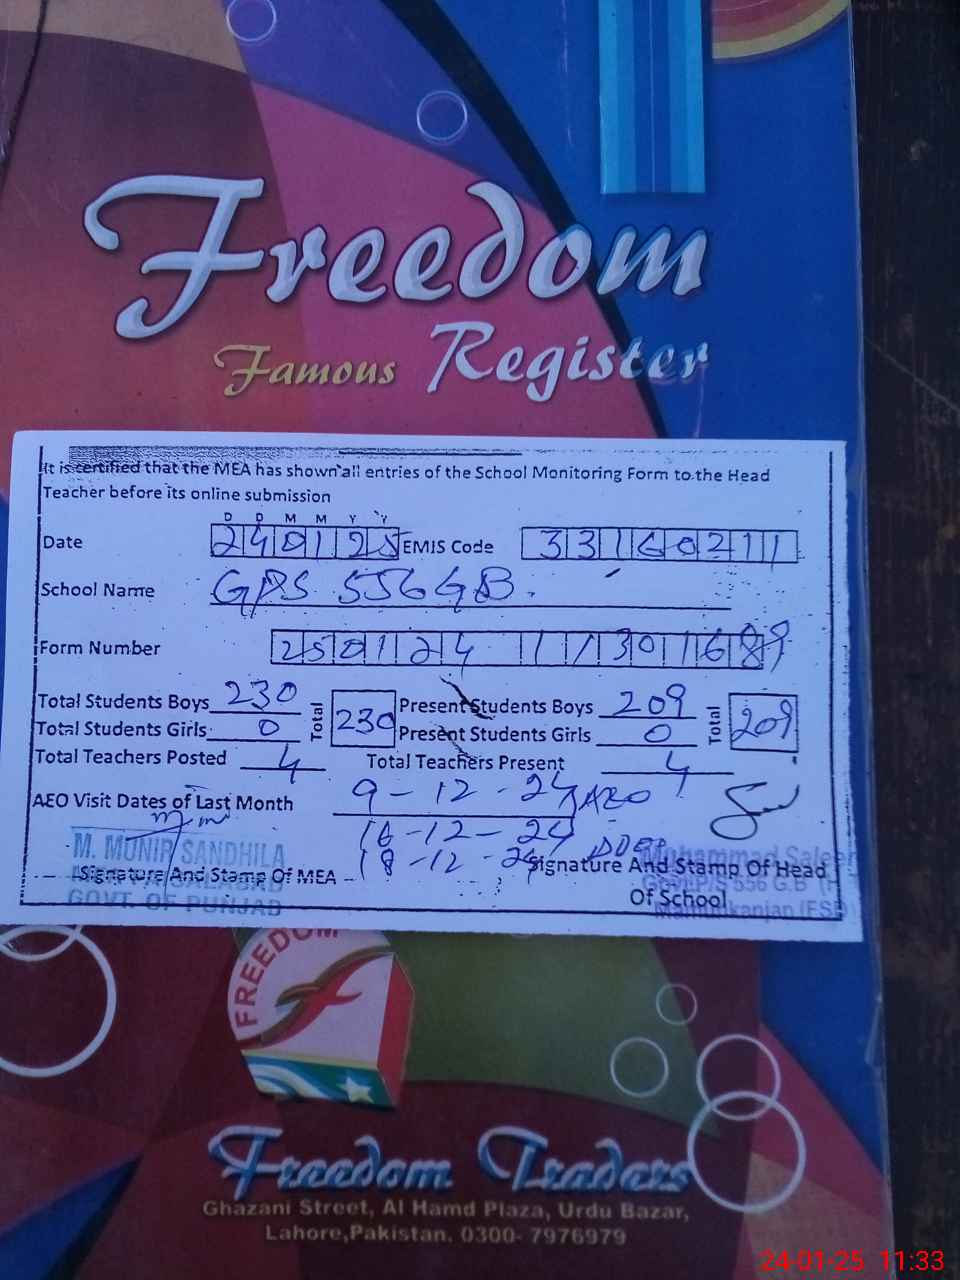 Freedom
Famous Register
It is certified that the MEA has shown all entries of the School Monitoring Form to the Head
Teacher before its online submission
D D M M Y Y
Date 240125 EMIS Code 33160211
School Name GPS 556 GB.
Form Number 250124 1130168
Total Students Boys 230 Total 230 Present Students Boys 209 Total 209
Total Students Girls 0 Present Students Girls 0
Total Teachers Posted 4 Total Teachers Present 4
AEO Visit Dates of Last Month 9-12-24 AEO
16-12-24
18-12-24
M. MUNIR SANDHILA
Signature And Stamp Of MEA
GOVT. OF PUNJAB
Muhammad Saleem
Signature And Stamp Of Head
Govt. P/S 556 G.B
Of School
Mamunkanjan (FSD)
FREEDOM
Freedom Traders
Ghazani Street, Al Hamd Plaza, Urdu Bazar,
Lahore,Pakistan. 0300- 7976979
24-01-25 11:33